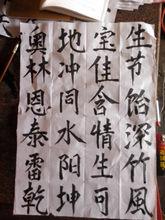 生节饴深竹風
室佳含情生可
地冲同水阳坤
奥林恩泰雷乾